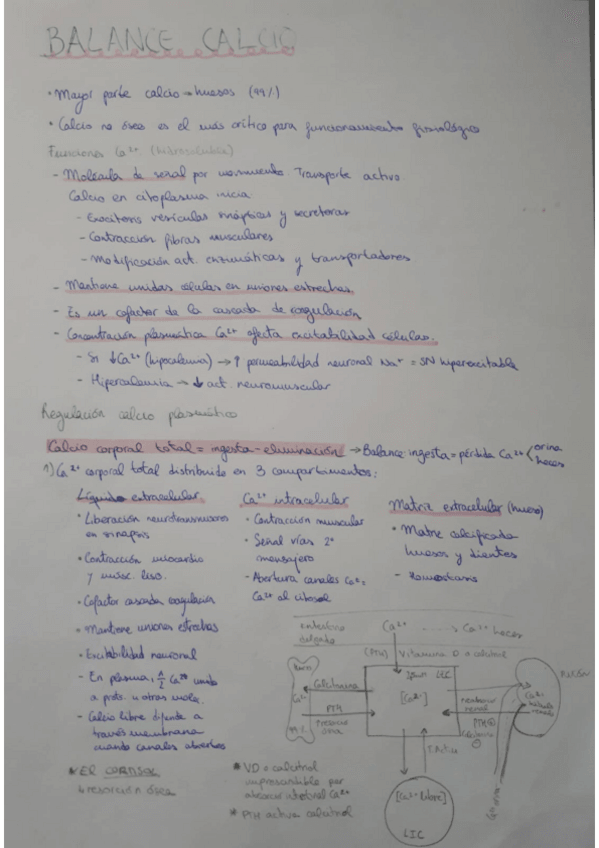 BALANCE CALCIO
• Mayor parte calcio → huesos (99%)
• Calcio no óseo es el más crítico para funcionamiento fisiológico
Funciones Ca²⁺ (hidrosoluble)
- Molécula de señal por movimiento Transporte activo.
Calcio en citoplasma inicia
- Exocitosis vesículas sinápticas y secretoras
- Contracción fibras musculares
- Modificación act. enzimáticas y transportadores
- Mantiene unidas células en uniones estrechas
- Es un cofactor de la cascada de coagulación
- Concentración plasmática Ca²⁺ afecta excitabilidad células.
- Si ↓Ca²⁺ (hipocalcemia) → ↑ permeabilidad neuronal Na⁺ = SN hiperexcitable
- Hipercalcemia → ↓ act. neuromuscular
Regulación calcio plasmático
Calcio corporal total = ingesta - eliminación → Balance: ingesta = pérdida Ca²⁺ < orina
heces
1) Ca²⁺ corporal total distribuido en 3 compartimentos:
Líquido extracelular
• Liberación neurotransmisores
en sinapsis
• Contracción miocardio
y músc. liso.
• Cofactor cascada coagulación
• Mantiene uniones estrechas
• Excitabilidad neuronal
- En plasma, 1/2 Ca²⁺ unido
a prots. u otras moléc.
- Calcio libre difunde a
través membrana
cuando canales abiertos
Ca²⁺ intracelular
- Contracción muscular
- Señal vías 2º
mensajero
- Abertura canales Ca²⁺ =
Ca²⁺ al citosol
Matriz extracelular (hueso)
• Matriz calcificada
huesos y dientes
- Homeostasis
intestino
delgado
Ca²⁺
Ca²⁺ heces
(PTH) Vitamina D o calcitrol
LEC
[Ca²⁺]
Calcitonina
PTH
Ca²⁺
99%
RIÑÓN
renal
PTH
Ca²⁺
T. Activo
[Ca²⁺ libre]
LIC
Ca²⁺ orina
* EL CORTISOL
↳ resorción ósea
* VD o calcitrol
imprescindible por
absorción intestinal Ca²⁺
* PTH activa calcitrol